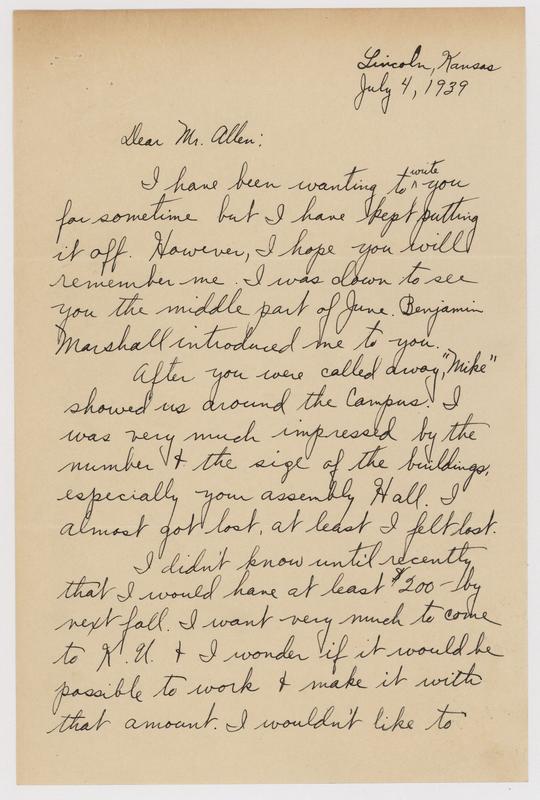 Lincoln, Kansas
July 4, 1939
Dear Mr. Allen:
I have been wanting to write you
for sometime but I have kept putting
it off. However, I hope you will
remember me. I was down to see
you the middle part of June. Benjamin
Marshall introduced me to you.
After you were called away, "Mike"
showed us around the Campus. I
was very much impressed by the
number & the size of the buildings,
especially your assembly Hall. I
almost got lost, at least I felt lost.
I didn't know until recently
that I would have at least $200 - by
next fall. I want very much to come
to K.U. & I wonder if it would be
possible to work & make it with
that amount. I wouldn't like to